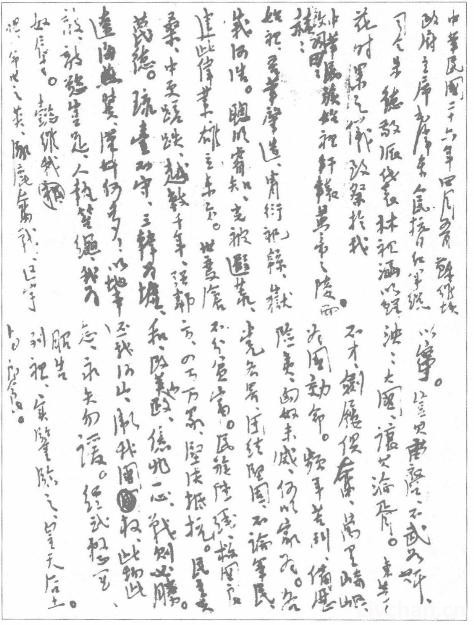 中華民國二十六年四月五日、蘇維埃
政府主席毛澤東、人民抗日紅軍總
司令朱德敬派代表林祖涵以鮮
花時果之儀致祭於我
中華民族始祖軒轅黃帝之陵。而
致詞曰
赫赫
始祖、吾華肇造、胄衍祀緜、嶽
峨河浩。聰明睿知、光被遐荒、
建此偉業、雄立東方。世變滄
桑、中更蹉跌、越數千年、強鄰
蔑德。琉臺不守、三韓為墟、
遼海燕冀、漢奸何多、以地事
敵、敵欲豈足、人執笞繩、我為
奴辱。懿維我祖、
命世之英、涿鹿奮戰、區宇
以寧。豈其苗裔、不武如斯、
泱泱大國、讓其淪胥。東等
不才、劍屨俱奮、萬里崎嶇、
為國效命。頻年苦鬥、備歷
險夷、匈奴未滅、何以家為。各
黨各界、團結堅固、不論軍民、
不分貧富。民族陣綫、救國良
方、四萬萬眾、堅決抵抗。民主共
和、改革內政、億兆一心、戰則必勝。
還我河山、衛我國權、此物此
志、永矢勿諼。經武整軍、
昭告
列祖、實鑒臨之、皇天后土。
尚饗。